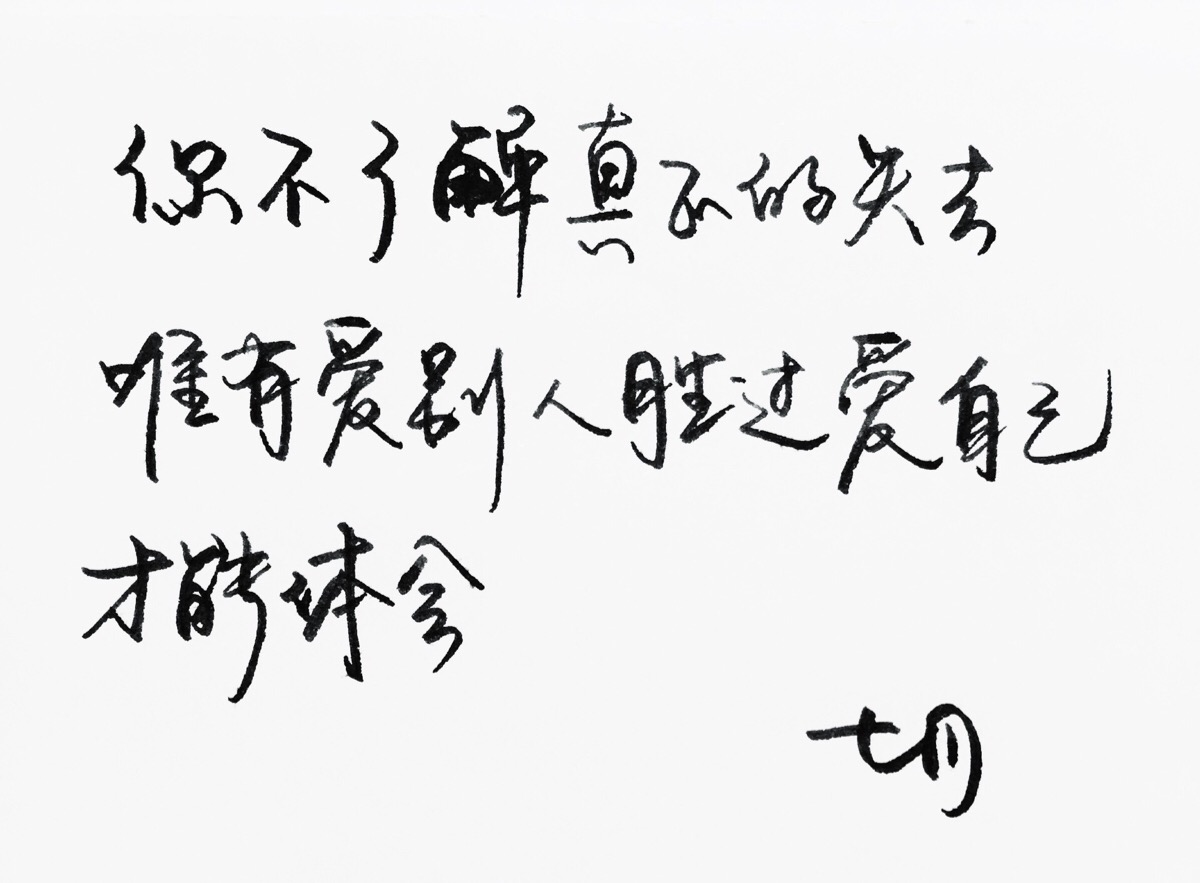 你不了解真正的失去
唯有爱别人胜过爱自己
才能体会
七月